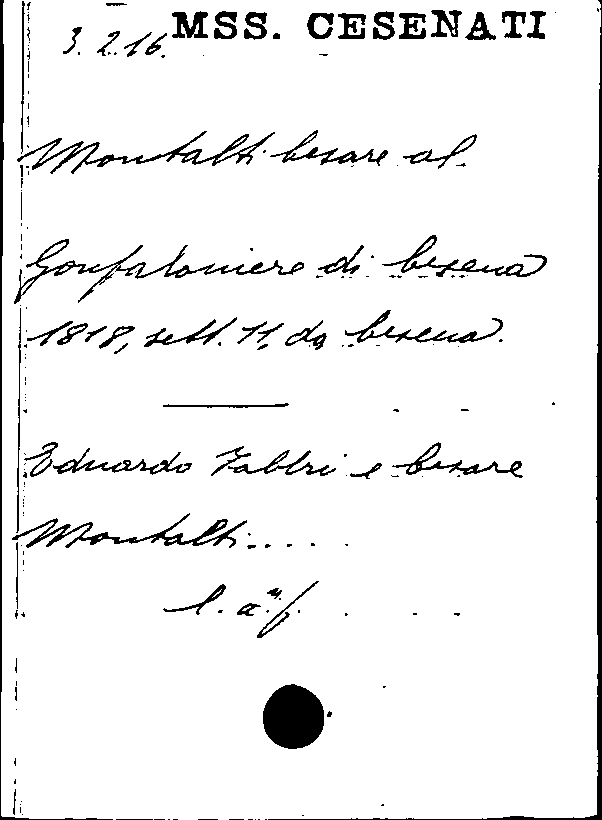 MSS. CESENATI
3.2.16.
Montalti Cesare al
Gonfaloniere di Cesena
1818, sett. 11, da Cesena.
Eduardo Fabbri e Cesare
Montalti.....
l. a. f.